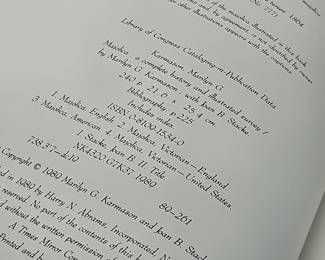 tureen 1984.
No. 777)
of the majolica illustrated in this book
and, by agreement, is so identified by name
illustrations appears with the captions.
Library of Congress Cataloging-in-Publication Data
Karmason, Marilyn G.
Majolica : a complete history and illustrated survey /
by Marilyn G. Karmason with Joan B. Stacke.
240 p. 21.0 x 25.4 cm
Bibliography: p. 225
Includes index.
ISBN 0-8109-1534-0
1. Majolica, English. 2. Majolica, Victorian—England.
3. Majolica, American. 4. Majolica, Victorian—United States.
I. Stacke, Joan B. II. Title.
NK4320.G7K37 1989
738.3'7—dc19 89-261
Copyright © 1989 Marilyn G. Karmason and Joan B. Stacke
in 1989 by Harry N. Abrams, Incorporated, N
reserved. No part of the contents of this book
without the written permission of
A Times Mirror Company
Printed and b